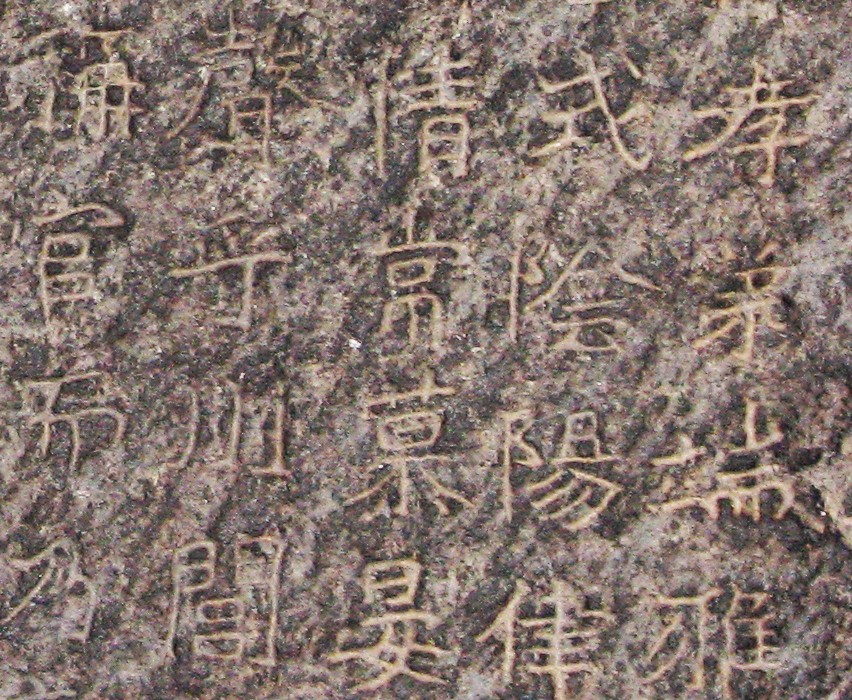 孝弟端雅
式陰陽律
情常慕晏
聲乎州閭
彌官而乃